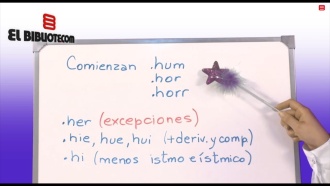 EL BIBLIOTECOM
Comienzan .hum
.hor
.horr
.her (excepciones)
.hie, hue, hui (+deriv. y comp)
.hi (menos istmo e ístmico)